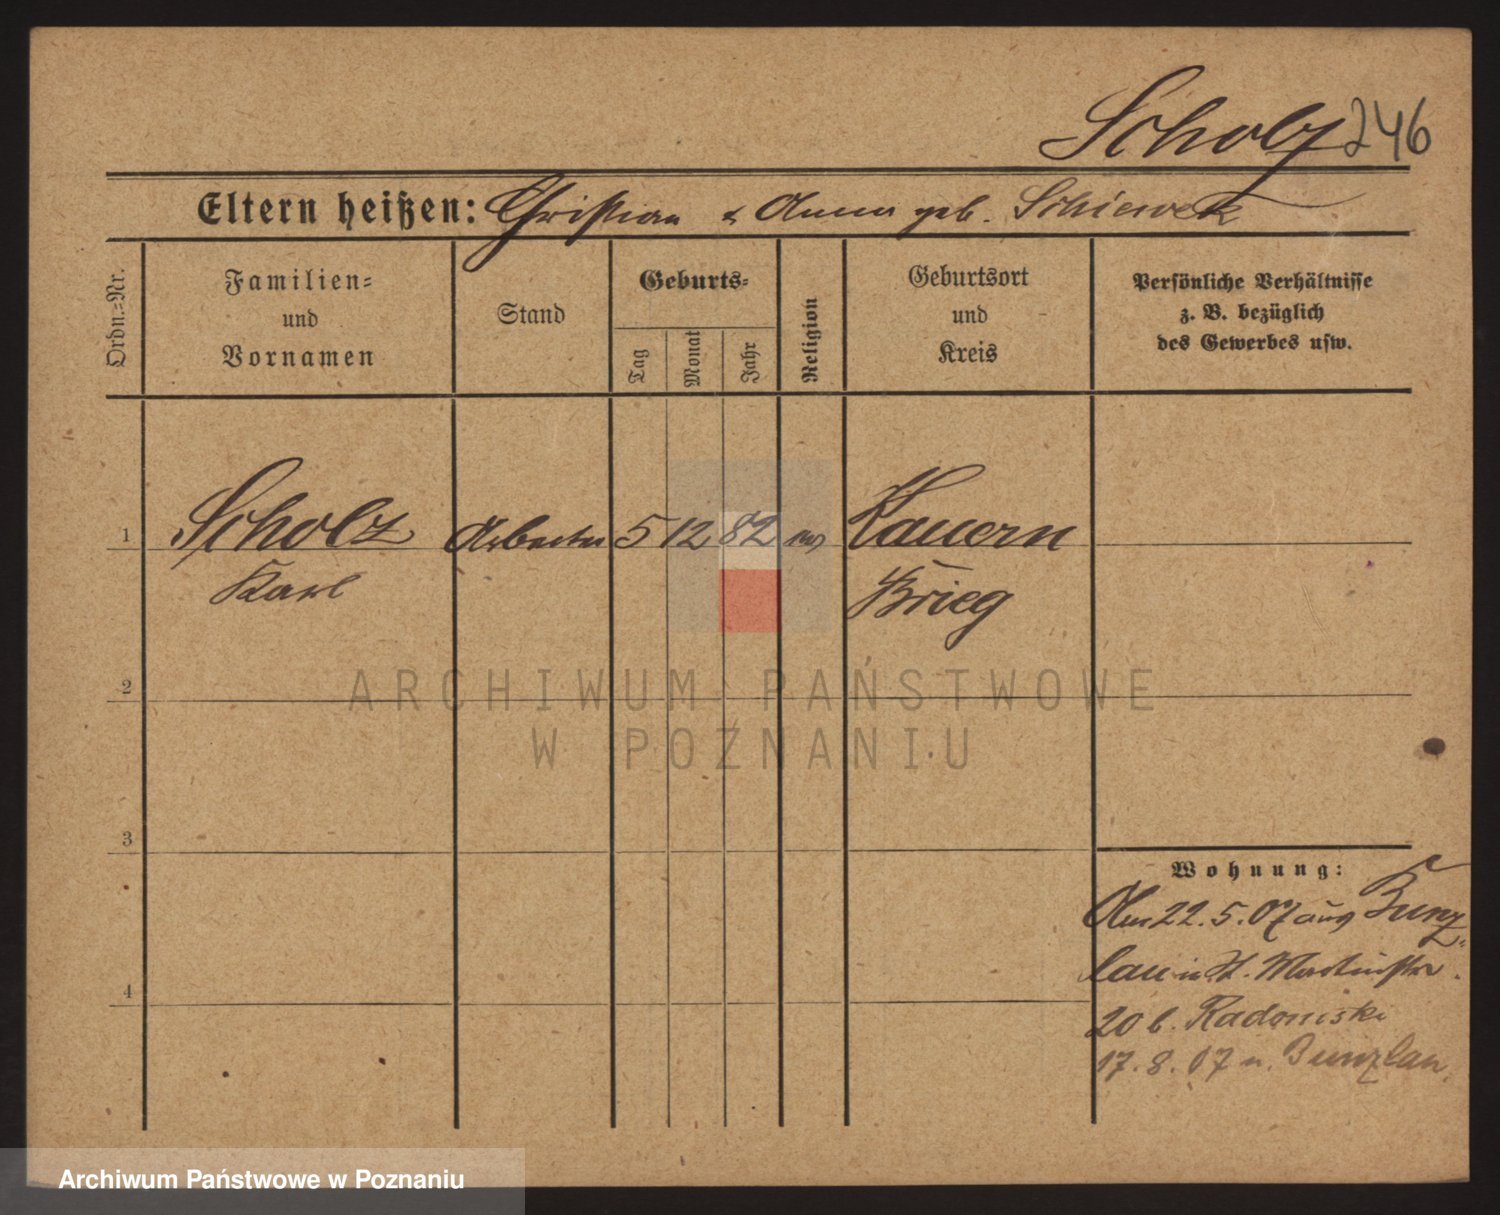 Scholz 246
Eltern heißen: Christian & Anna geb. Schiewek
Ordn.=Nr.
Familien=
und
Vornamen
Stand
Geburts=
Tag
Monat
Jahr
Religion
Geburtsort
und
Kreis
Persönliche Verhältnisse
z. B. bezüglich
des Gewerbes usw.
1
Scholz
Karl
Arbeiter
5 12 82
ev
Kauern
Brieg
2
3
4
Wohnung:
Am 22.5.07 aus Bunz-
lau in St. Martinstr.
20 b. Radomski
17.8.07 n. Bunzlau.
ARCHIWUM PAŃSTWOWE
W POZNANIU
Archiwum Państwowe w Poznaniu